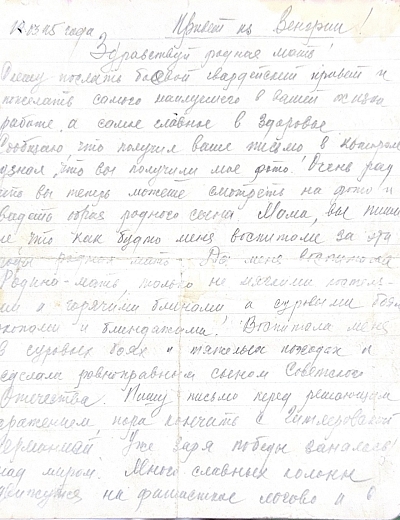 13 45 года Привет из Венгрии!
Здравствуй родная мать!
Спешу послать боевой гвардейский привет и
пожелать самого наилучшего в вашей жизни
работе, а самое главное в здоровье
Сообщаю что получил ваше письмо в котором
узнал, что вы получили мое фото! Очень рад
что вы теперь можете смотреть на фото и
видать образ родного сына. Мама, вы пиши
те что как будто меня воспитали за эти
годы родная мать. Да меня воспитала
Родина-мать, только не мягкими
и горячими блинами а суровыми боями
окопами и блиндажами! Воспитала меня
в суровых боях и тяжелых походах и
сделала равноправным сыном Советского
Отечества. Пишу письмо перед решающим
сражением, пора кончать с Гитлеровской
Германией. Уже заря победы занялась!
над миром. Много славных колонн
движутся на фашистское логово и в